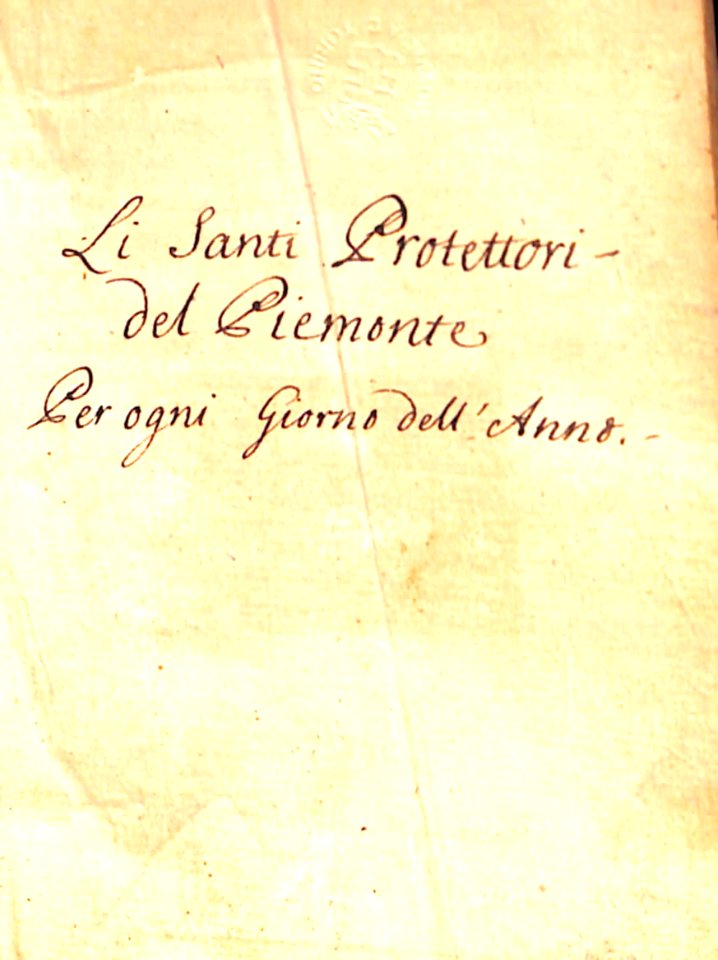 Li Santi Protettori -
del Piemonte
Per ogni Giorno dell' Anno. -